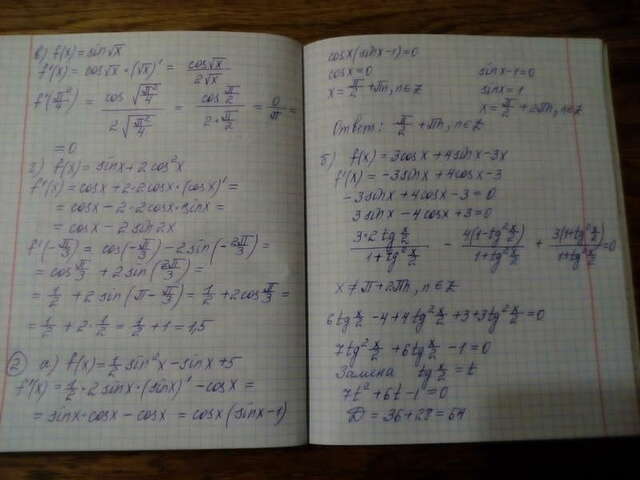 в) f(x) = sin√x
f'(x) = cos√x · (√x)' = cos√x / 2√x
f'(π²/4) = cos√(π²/4) / 2√(π²/4) = cos π/2 / 2·π/2 = 0/π =
= 0
г) f(x) = sinx + 2cos²x
f'(x) = cosx + 2·2cosx·(cosx)' =
= cosx - 2·2cosx·sinx =
= cosx - 2sin2x
f'(-π/3) = cos(-π/3) - 2sin(-2π/3) =
= cos π/3 + 2sin(2π/3) =
= 1/2 + 2sin(π - π/3) = 1/2 + 2cos π/3 =
= 1/2 + 2·1/2 = 1/2 + 1 = 1,5
② а) f(x) = 1/2 sin²x - sinx + 5
f'(x) = 1/2 · 2sinx · (sinx)' - cosx =
= sinx·cosx - cosx = cosx(sinx-1)
cosx(sinx-1) = 0
cosx = 0 sinx-1 = 0
x = π/2 + πn, n∈Z sinx = 1
x = π/2 + 2πn, n∈Z
Ответ: π/2 + πn, n∈Z
б) f(x) = 3cosx + 4sinx - 3x
f'(x) = -3sinx + 4cosx - 3
-3sinx + 4cosx - 3 = 0
3sinx - 4cosx + 3 = 0
3·2tg x/2 / 1+tg² x/2 - 4(1-tg² x/2) / 1+tg² x/2 + 3(1+tg² x/2) / 1+tg² x/2 = 0
x ≠ π + 2πn, n∈Z
6tg x/2 - 4 + 4tg² x/2 + 3 + 3tg² x/2 = 0
7tg² x/2 + 6tg x/2 - 1 = 0
Замена tg x/2 = t
7t² + 6t - 1 = 0
D = 36 + 28 = 64